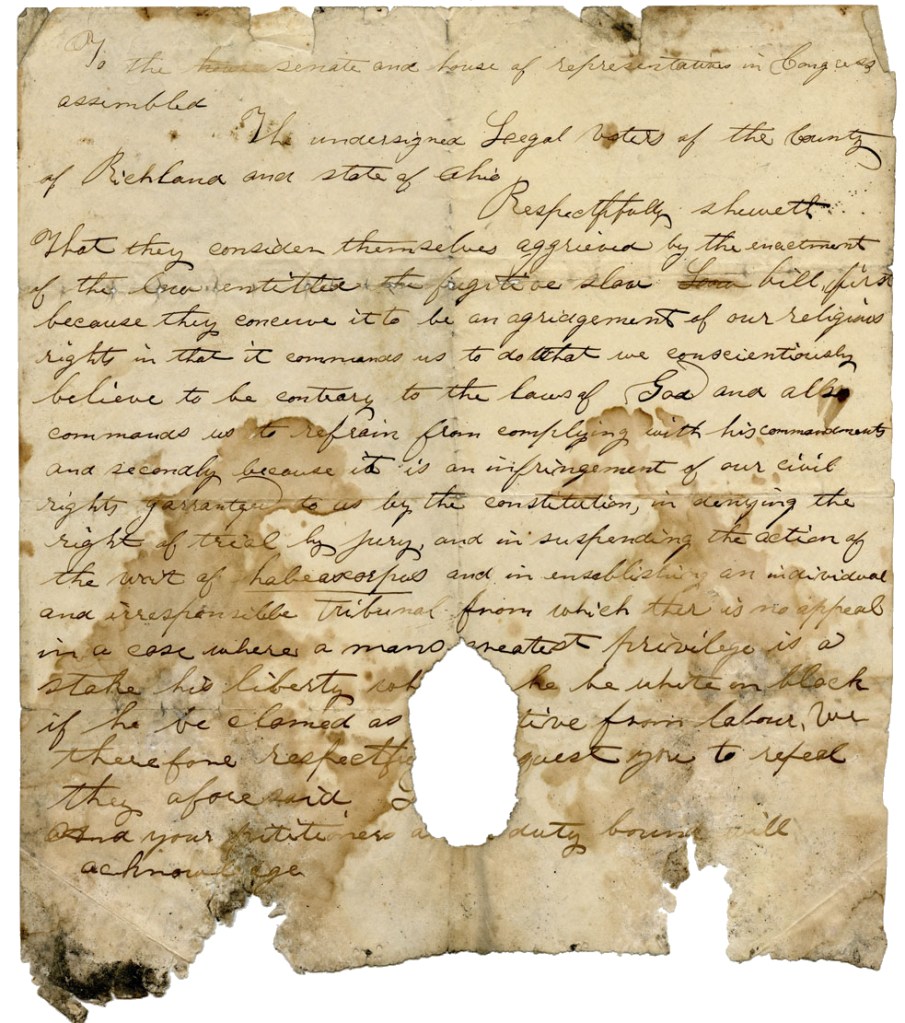 To the senate and house of representatives in Congress
assembled
The undersigned Leegal voters of the County
of Richland and state of Ohio
Respectfully sheweth
That they consider themselves aggrieved by the enactment
of the law entitled the fugitive slave Law bill, first
because they conceive it to be an agridgement of our religious
rights in that it commands us to do that we conscientiously
believe to be contrary to the laws of God and also
commands us to refrain from complying with his commandments
and secondly because it is an infringement of our civil
rights garranteed to us by the constitution, in denying the
right of trial by jury, and in suspending the action of
the writ of habeascorpus and in enseblishing an individual
and irresponsible Tribunal from which ther is no appeal
in a case where a mans greatest privilege is a
stake his liberty wh he be white or black
if he be clamed as tive from labour, We
therefore respectfu quest you to repeal
they aforesaid L
And your petitioners a duty bound will
acknowledge